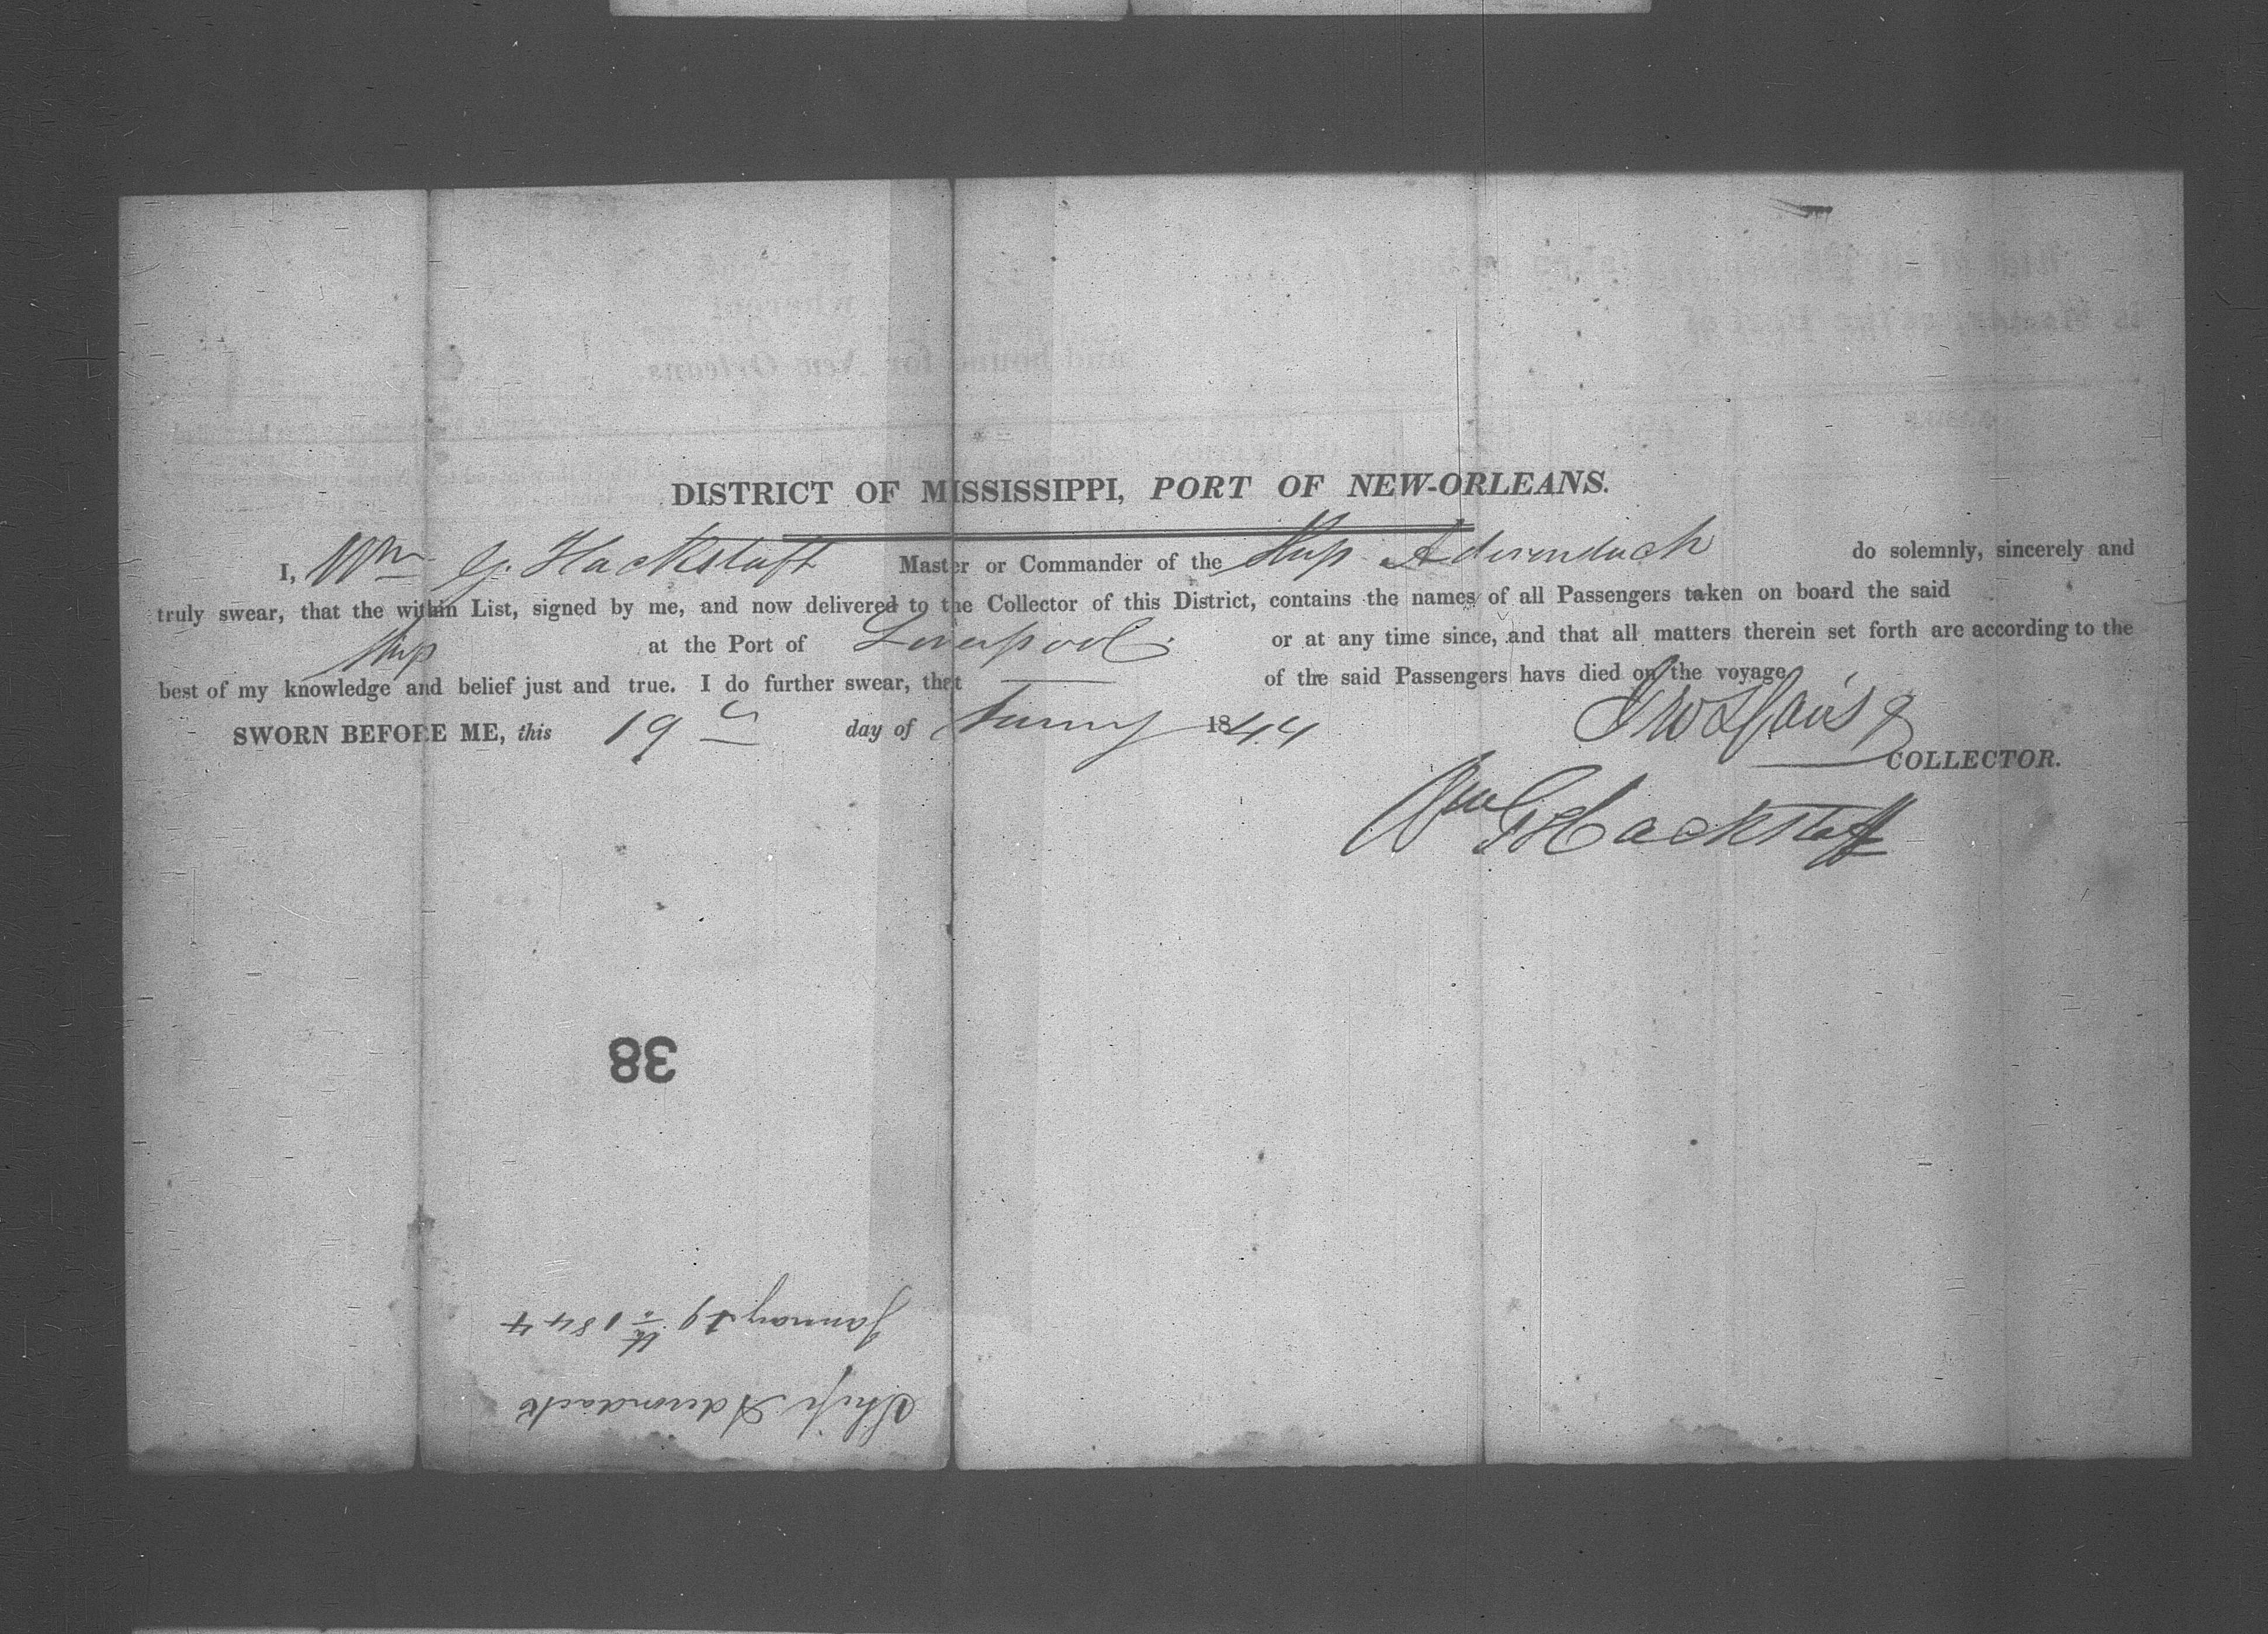 DISTRICT OF MISSISSIPPI, PORT OF NEW-ORLEANS.
I, Wm G. Hackstaff Master or Commander of the Ship Adirondack do solemnly, sincerely and
truly swear, that the within List, signed by me, and now delivered to the Collector of this District, contains the names of all Passengers taken on board the said
Ship at the Port of Liverpool or at any time since, and that all matters therein set forth are according to the
best of my knowledge and belief just and true. I do further swear, that of the said Passengers havs died on the voyage
SWORN BEFORE ME, this 19 day of January 1844
COLLECTOR.
Wm G Hackstaff
38
Ship Adirondack
January 19th 1844